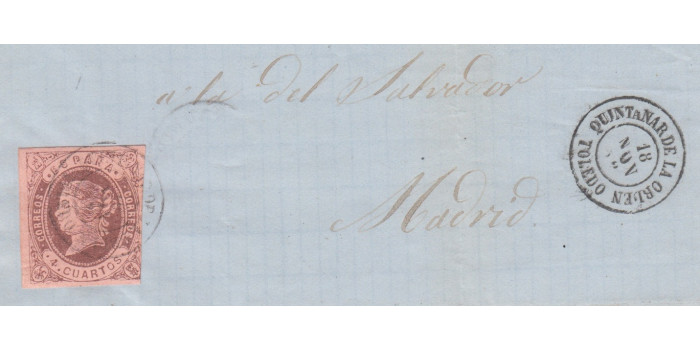 a la del Salvador
Madrid
ESPAÑA
CORREOS
CORREOS
4 CUARTOS
QUINTANAR DE LA ORDEN
TOLEDO
18
NOV